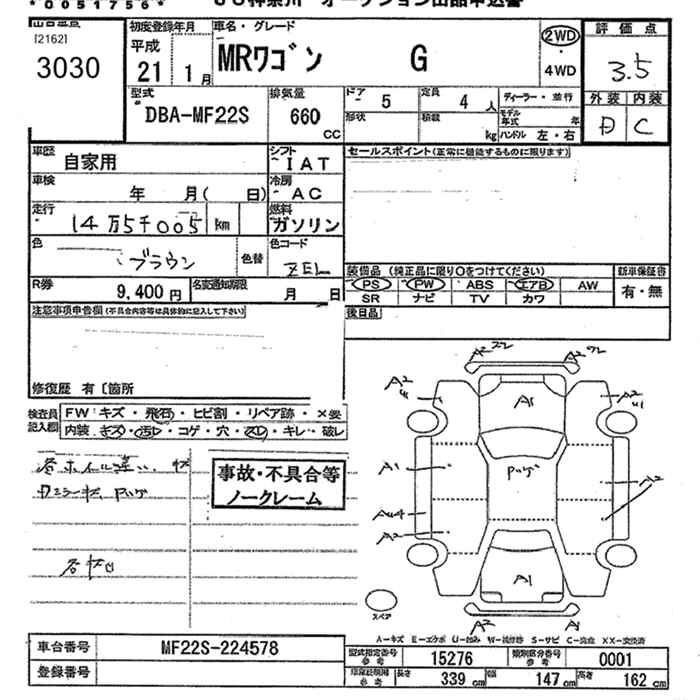 *0051756* JU神奈川 オークション出品申込書
[2162]
3030
初度登録年月
平成
21 1月
車名・グレード
MRワゴン G
2WD
4WD
評価点
3.5
外装 内装
D C
型式
DBA-MF22S
排気量
660
CC
ドア 5
定員 4人
ディーラー・並行
形状
積載 kg
モデル年式 年
ハンドル 左・右
車歴 自家用
シフト IAT
セールスポイント(正常に機能するものに限ります)
車検 年 月( 日)
冷房 AC
走行 14万5千005 km
燃料 ガソリン
色 ブラウン
色替
色コード ZEL
装備品(純正品に限り○をつけてください)
新車保証書
PS PW ABS エアB AW
有・無
SR ナビ TV カワ
R券 9,400円
名変通知期限 月 日
後日品
注意事項申告欄(不具合内容等は具体的に記入して下さい)
修復歴 有〔箇所
検査員記入欄
FW キズ・飛石・ヒビ割・リペア跡・×要
内装 キズ・汚レ・コゲ・穴・スレ・キレ・破レ
事故・不具合等
ノークレーム
A1
A1
A2
パンゲ
A1
A2
A1
スペア
A-キズ E-エクボ U-凹み W-補修跡 S-サビ C-腐食 XX-交換済
車台番号 MF22S-224578
登録番号
型式指定番号 参考 15276
類別区分番号 参考 0001
車庫証明用 参考
長さ 339cm
幅 147cm
高さ 162cm